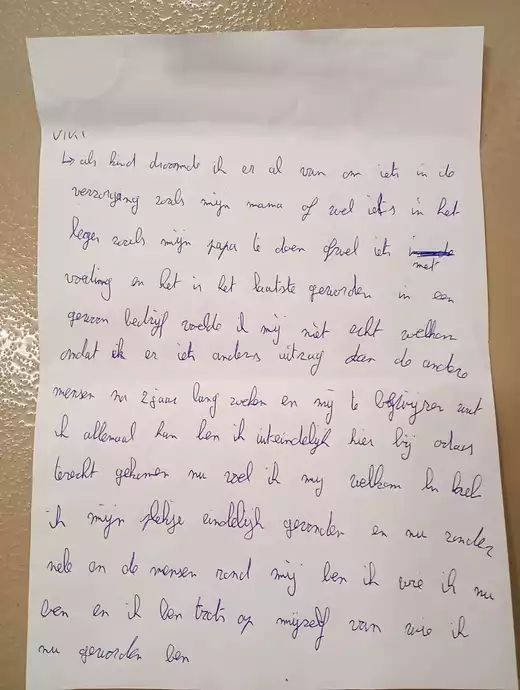 VIKI
↳ als kind droomde ik er al van om iets in de
verzorging zoals mijn mama of wel iets in het
leger zoals mijn papa te doen ofwel iets
met
voeding en het is het laatste geworden in een
gewoon bedrijf voelde ik mij niet echt welkom
omdat ik er iets anders uitzag dan de andere
mensen na 2 jaar lang zoeken en mij te bewijzen wat
ik allemaal kan ben ik uiteindelijk hier bij
terecht gekomen nu voel ik mij welkom en heb
ik mijn plekje eindelijk gevonden en nu zonder
nele en de mensen rond mij ben ik wie ik nu
ben en ik ben trots op mijzelf van wie ik
nu geworden ben